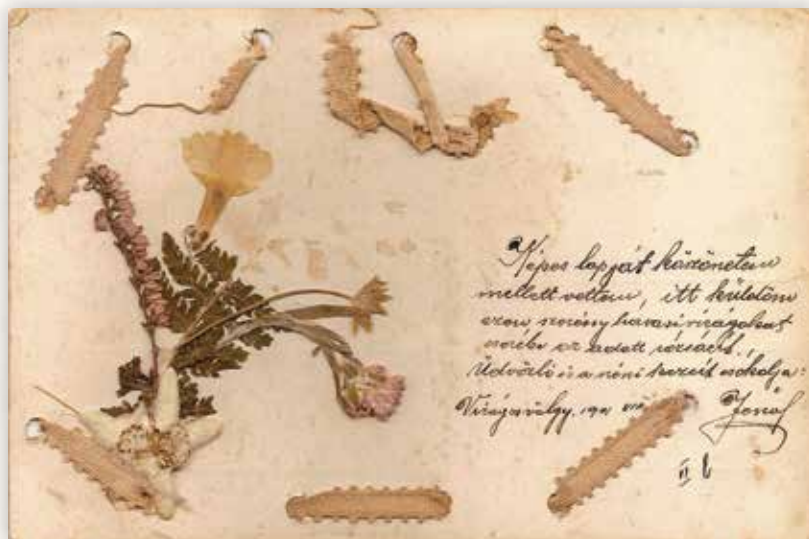 Képes lapját köszönetem
mellett vettem, itt küldöm
ezen szerény havasi virágokat
cserébe az adott rózsáért.,
Üdvözli és a néni kezeit csókolja:
Virágosvölgy, 191 VIII Jenő
II